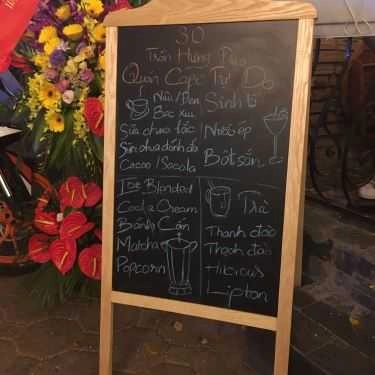 30
Trần Hưng Đạo
Quán Cafe Tự Do
Nâu/Đen
Bạc Xỉu
Sữa chua lắc
Sữa chua đánh đá
Cacao/Socola
Sinh tố
Nước ép
Bột sắn
Ice Blended
Cookie Cream
Bánh Cốm
Matcha
Popcorn
Trà
Thanh đào
Thạch đào
Hibicious
Lipton